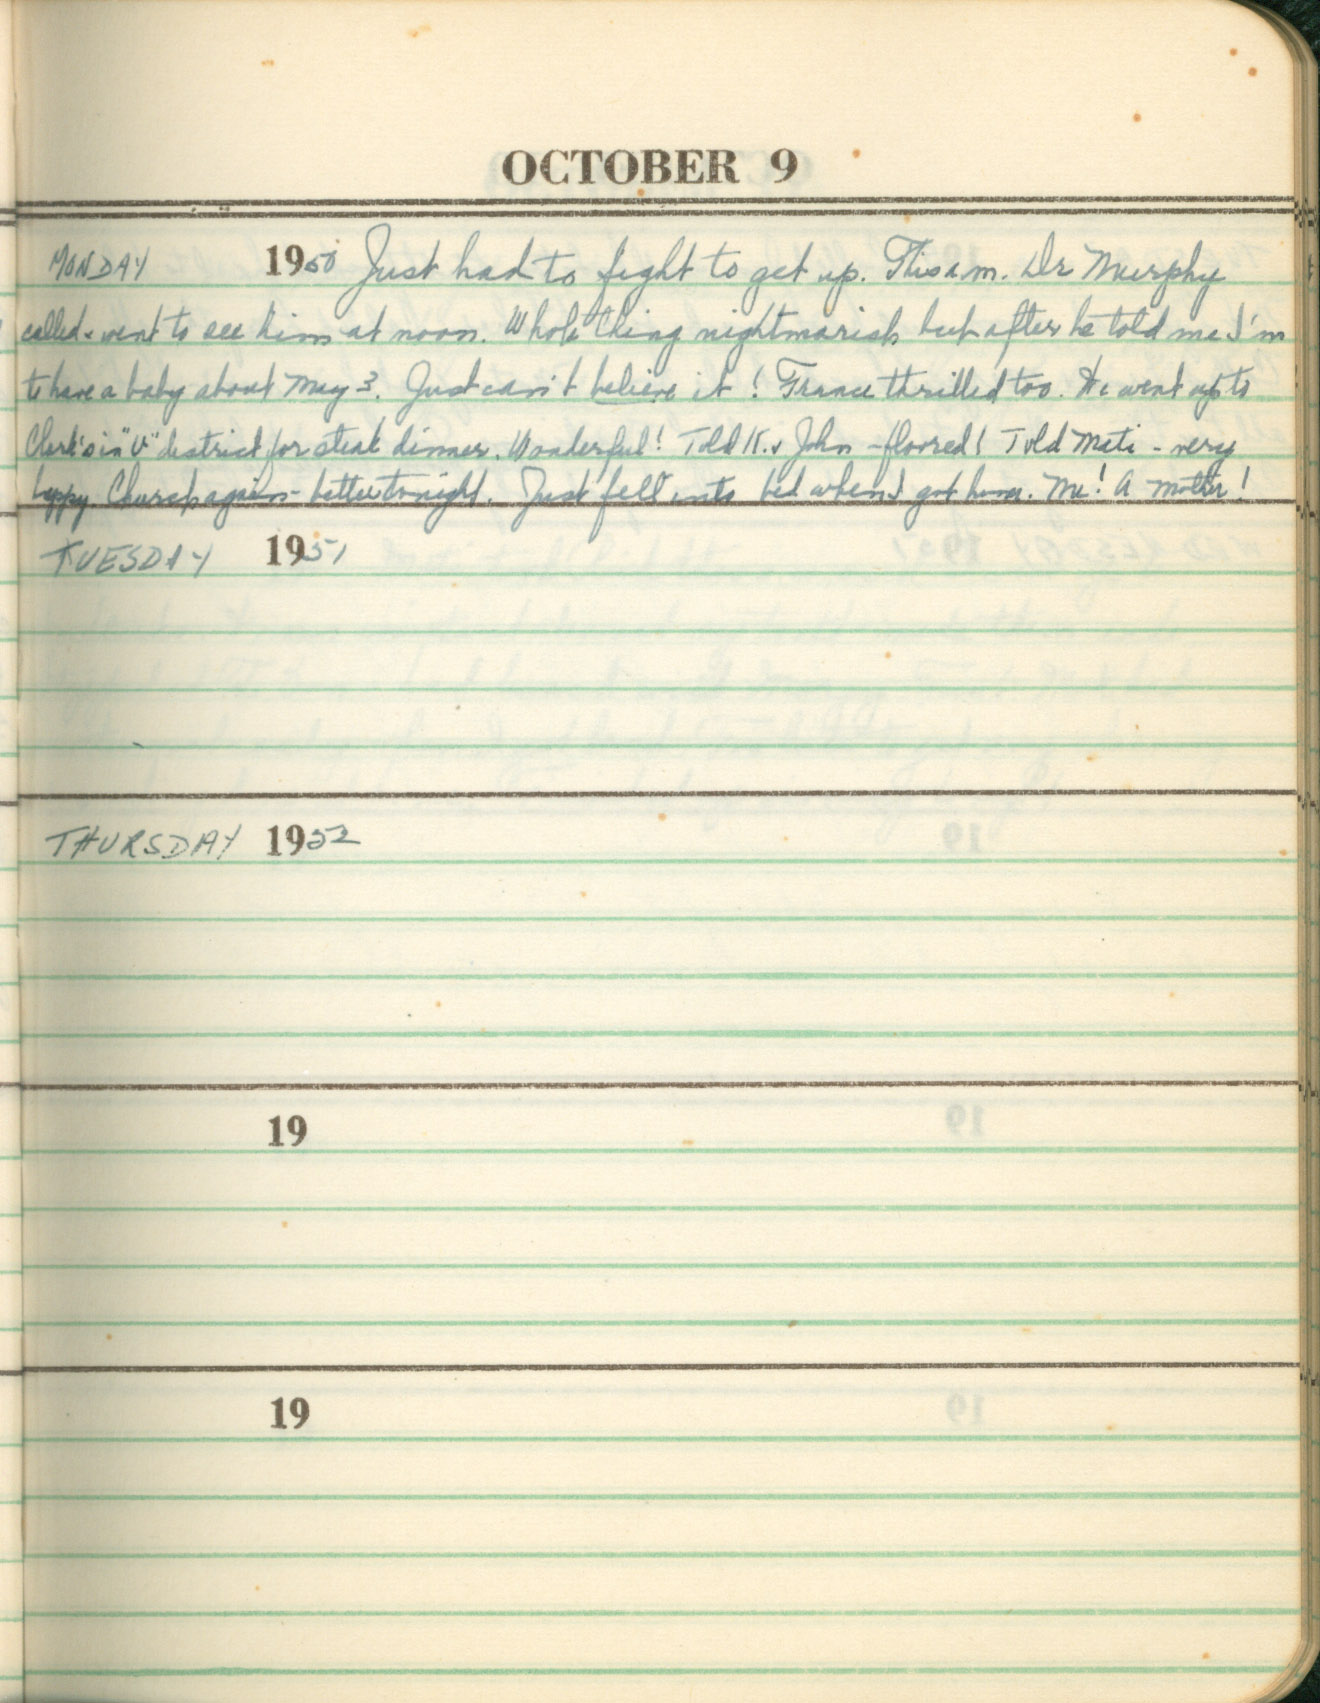 OCTOBER 9
MONDAY 1950 Just had to fight to get up. This a.m. Dr Murphy
called & went to see him at noon. Whole thing nightmarish but after he told me I'm
to have a baby about May 3. Just can't believe it! thrilled too. We went up to
Clark's in "U" district for steak dinner. Wonderful! Told K. & John - floored! Told Mati - very
happy. Church again - better tonight. Just fell into bed when I got home. Me! A mother!
TUESDAY 1951
THURSDAY 1952
19
19